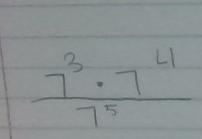 7³ · 7⁴
7⁵